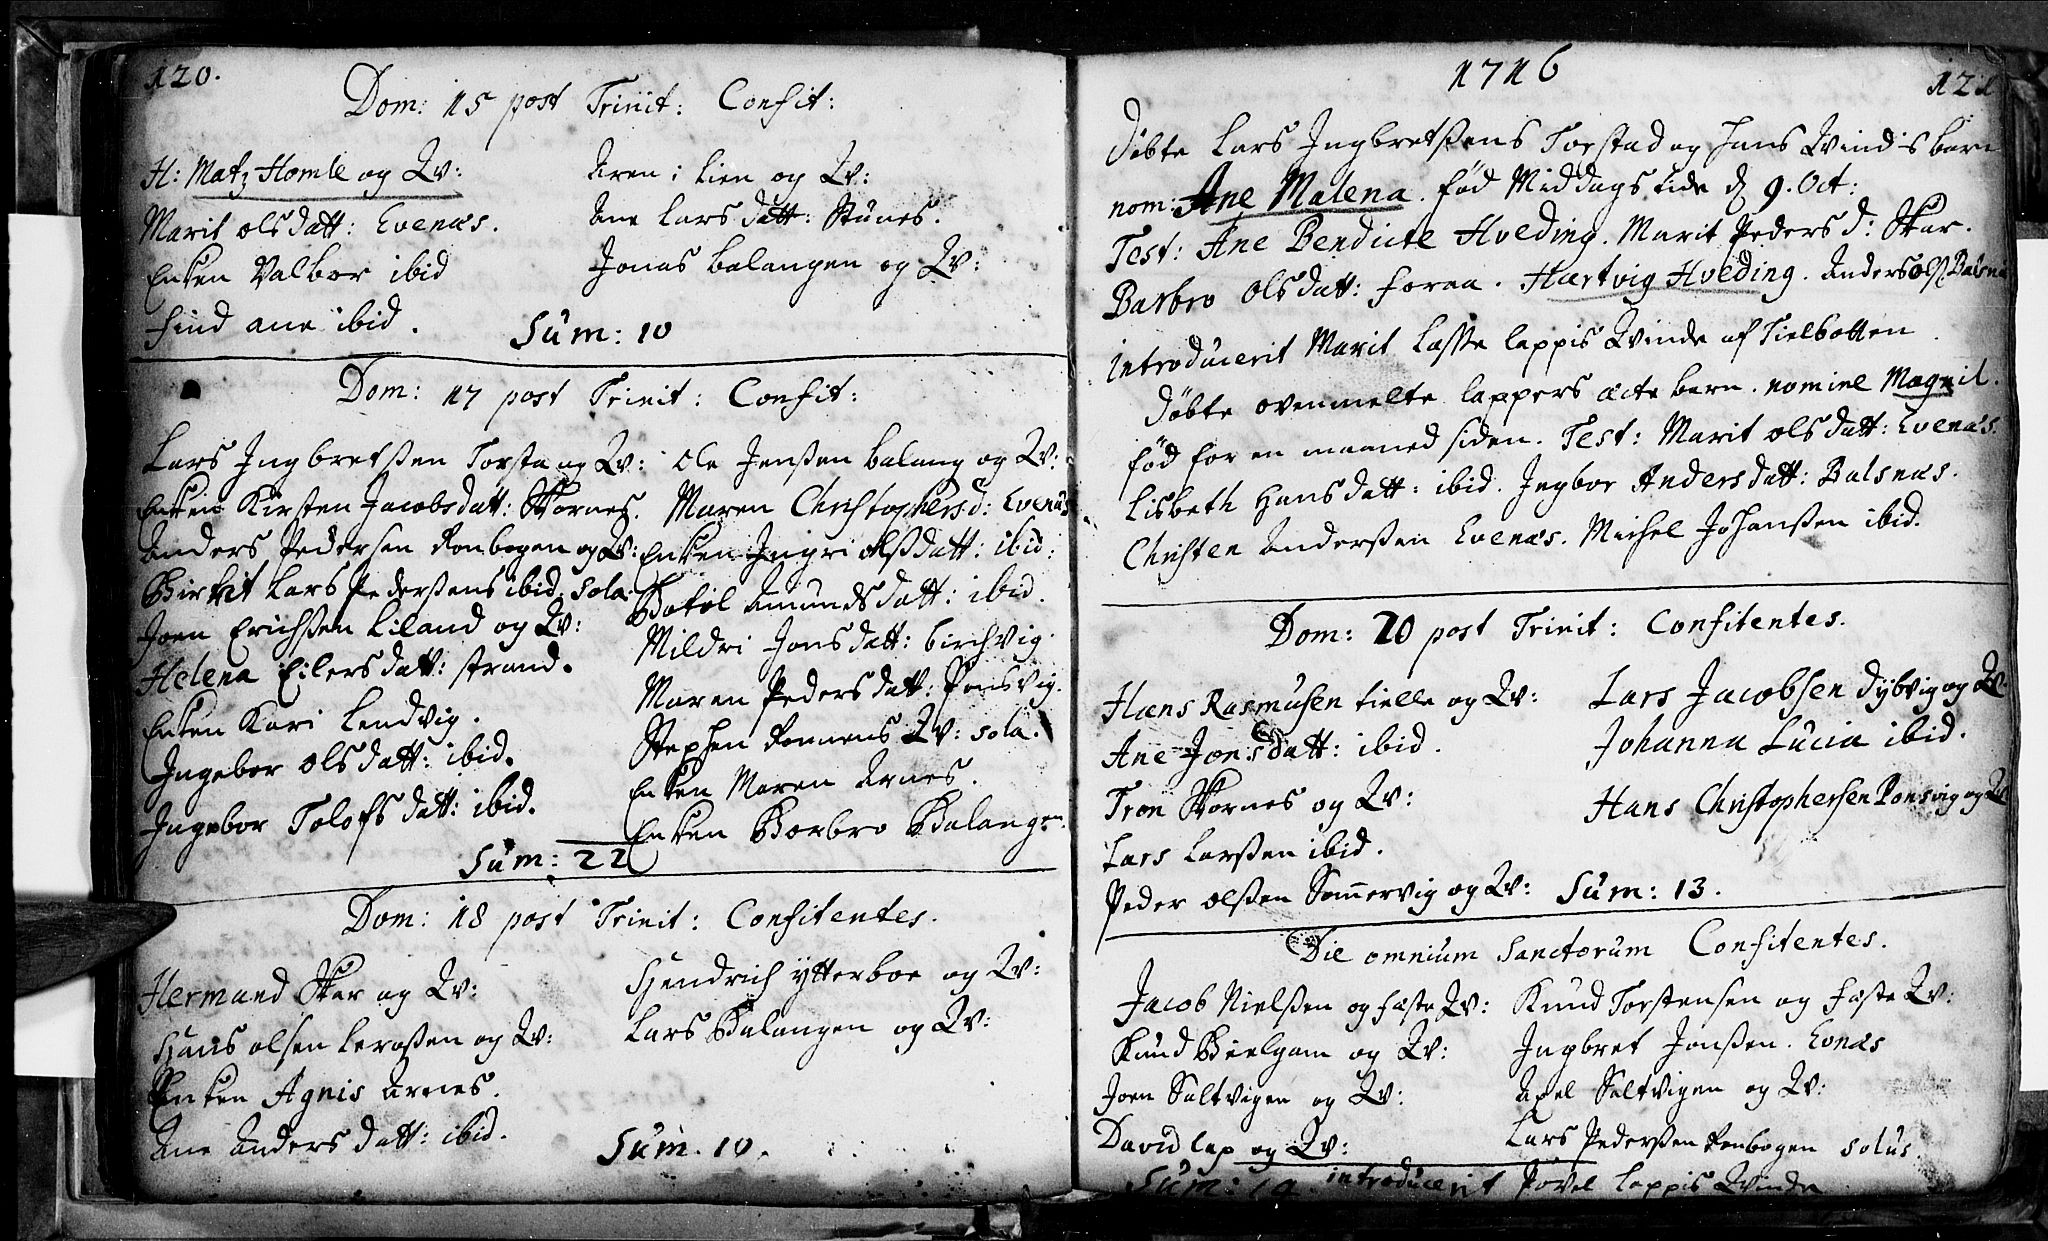 120.
Dom: 15 post Trinit: Confit:
H: Matz Homle og Qv:
Marit olsdatt: Evenæs.
Enken Valbor ibid
find ane ibid.
Aren i Lien og Qv:
Ane Larsdatt: Stunes.
Jonas balangen og Qv:
Sum: 10
Dom: 17 post Trinit: Confit:
Lars Ingbretßen Torsta og Qv:
Enken Kirsten Jacobsdatt: Skornes.
Anders Pedersen Ronbogen og Qv:
Birkit Lars Pederßens ibid. sola.
Joen Erichßen Liland og Qv:
Helena Eilersdatt: strand.
Enken Kari Lendvig.
Ingebor olsdatt: ibid.
Ingebor Tolofsdatt: ibid.
ole Jenßen balang og Qv:
Maren Christophersd: Evenæs
Enken Ingri olßdatt: ibid:
Botol Amundsdatt: ibid.
Mildri Jonsdatt: birchvig.
Maren Pedersdatt: Ponsvig.
Stephen Ronnens Qv: sola.
Enken Maren Arnes.
Enken Borbro Balangen.
Sum: 22
Dom: 18 post Trinit: Confitentes.
Hermand Skar og Qv:
Hans olsen Leroßen og Qv:
Enken Agnis Arnes.
Ane Andersdatt: ibid.
Hendrich ytterboe og Qv:
Lars Balangen og Qv:
Sum. 10.
1716
121
Døbte Lars Ingbretßens Torstad og hans Qvinds barn
nom: Ane Malena. fød Middags tide d 9. Oct:
Test: Ane Bendicte Hveding. Marit Pedersd: Skar.
Barbro olsdatt: foraa. Hartvig Hveding. Anders olß Balsnæs
introducerit Marit Laße lappis Qvinde af Tielbotten
Døbte ovenmelte lappers ächte barn. nomine Magnil.
fød for en maaned siden. Test: Marit olsdatt: Evenæs.
Lisbeth Hansdatt: ibid. Ingbor Andersdatt: Balsnæs.
Christen Anderßen Evenæs. Michel Johanßen ibid.
Dom: 20 post Trinit: Confitentes.
Hans Rasmusen tielle og Qv:
Ane Jonsdatt: ibid.
Tron Skornes og Qv:
Lars Larßen ibid.
Peder olßen Somervig og Qv:
Lars Jacobsen dybvig og Qv
Johanna Lucia ibid.
Hans Christophersen Ponsvig og Qv
Sum: 13.
Die omnium Sanctorum Confitentes.
Jacob Nielßen og fæste Qv:
Knud Bielgam og Qv:
Joen Saltvigen og Qv:
David lap og Qv:
Knud Torstensen og fæste Qv:
Ingbret Jonßen. Evnæs
Axel Saltvigen og Qv:
Lars Pederßen Renbogen solus.
Sum: 14. introducerit Povel lappis Qvinde